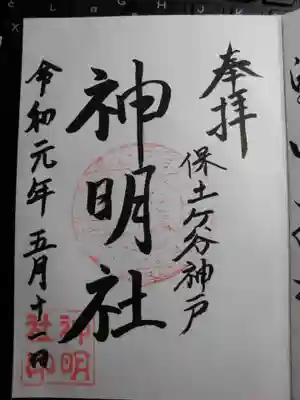 奉拝
保土ヶ谷神戸
神明社
令和元年五月十一日
神明
社印